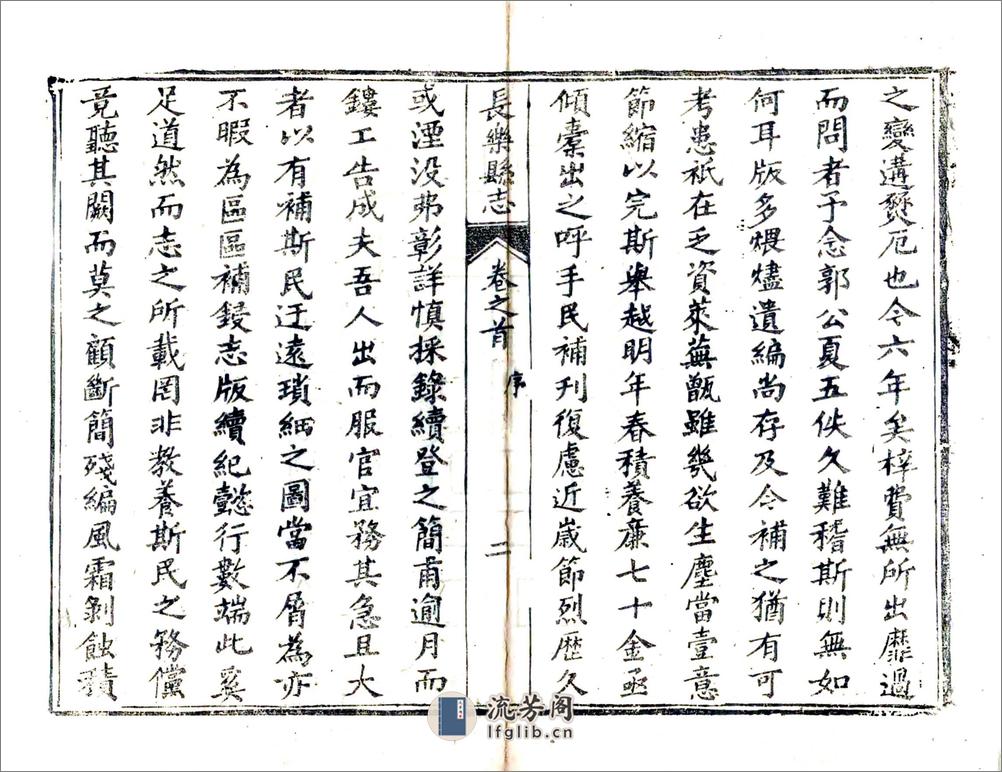 之變遘燹厄也今六年矣梓費無所出靡過
而問者予念郭公夏五佚久難稽斯則無如
何耳版多煨燼遺編尚存及今補之猶有可
考患祇在乏資萊蕪甑雖幾欲生塵當壹意
節縮以完斯舉越明年春積養廉七十金亟
傾橐出之呼手民補刊復慮近歲節烈歷久
長樂縣志
卷之首
序
二
或湮没弗彰詳慎採錄續登之簡甫逾月而
鏤工告成夫吾人出而服官宜務其急且大
者以有補斯民迂遠瑣細之圖當不屑為亦
不暇為區區補鋟志版續紀懿行數端此奚
足道然而志之所載罔非教養斯民之務儻
竟聽其闕而莫之顧斷簡殘編風霜剝蝕積
流芳阁
lfglib.cn